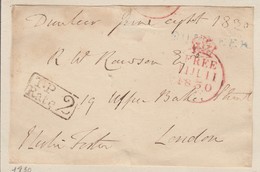 Dunleer June eight 1830
DUNLEER
R W Rawson Esq
FREE
11 JU 11
1830
T.P
Rate 2
19 Upper Baker Street
London
1830